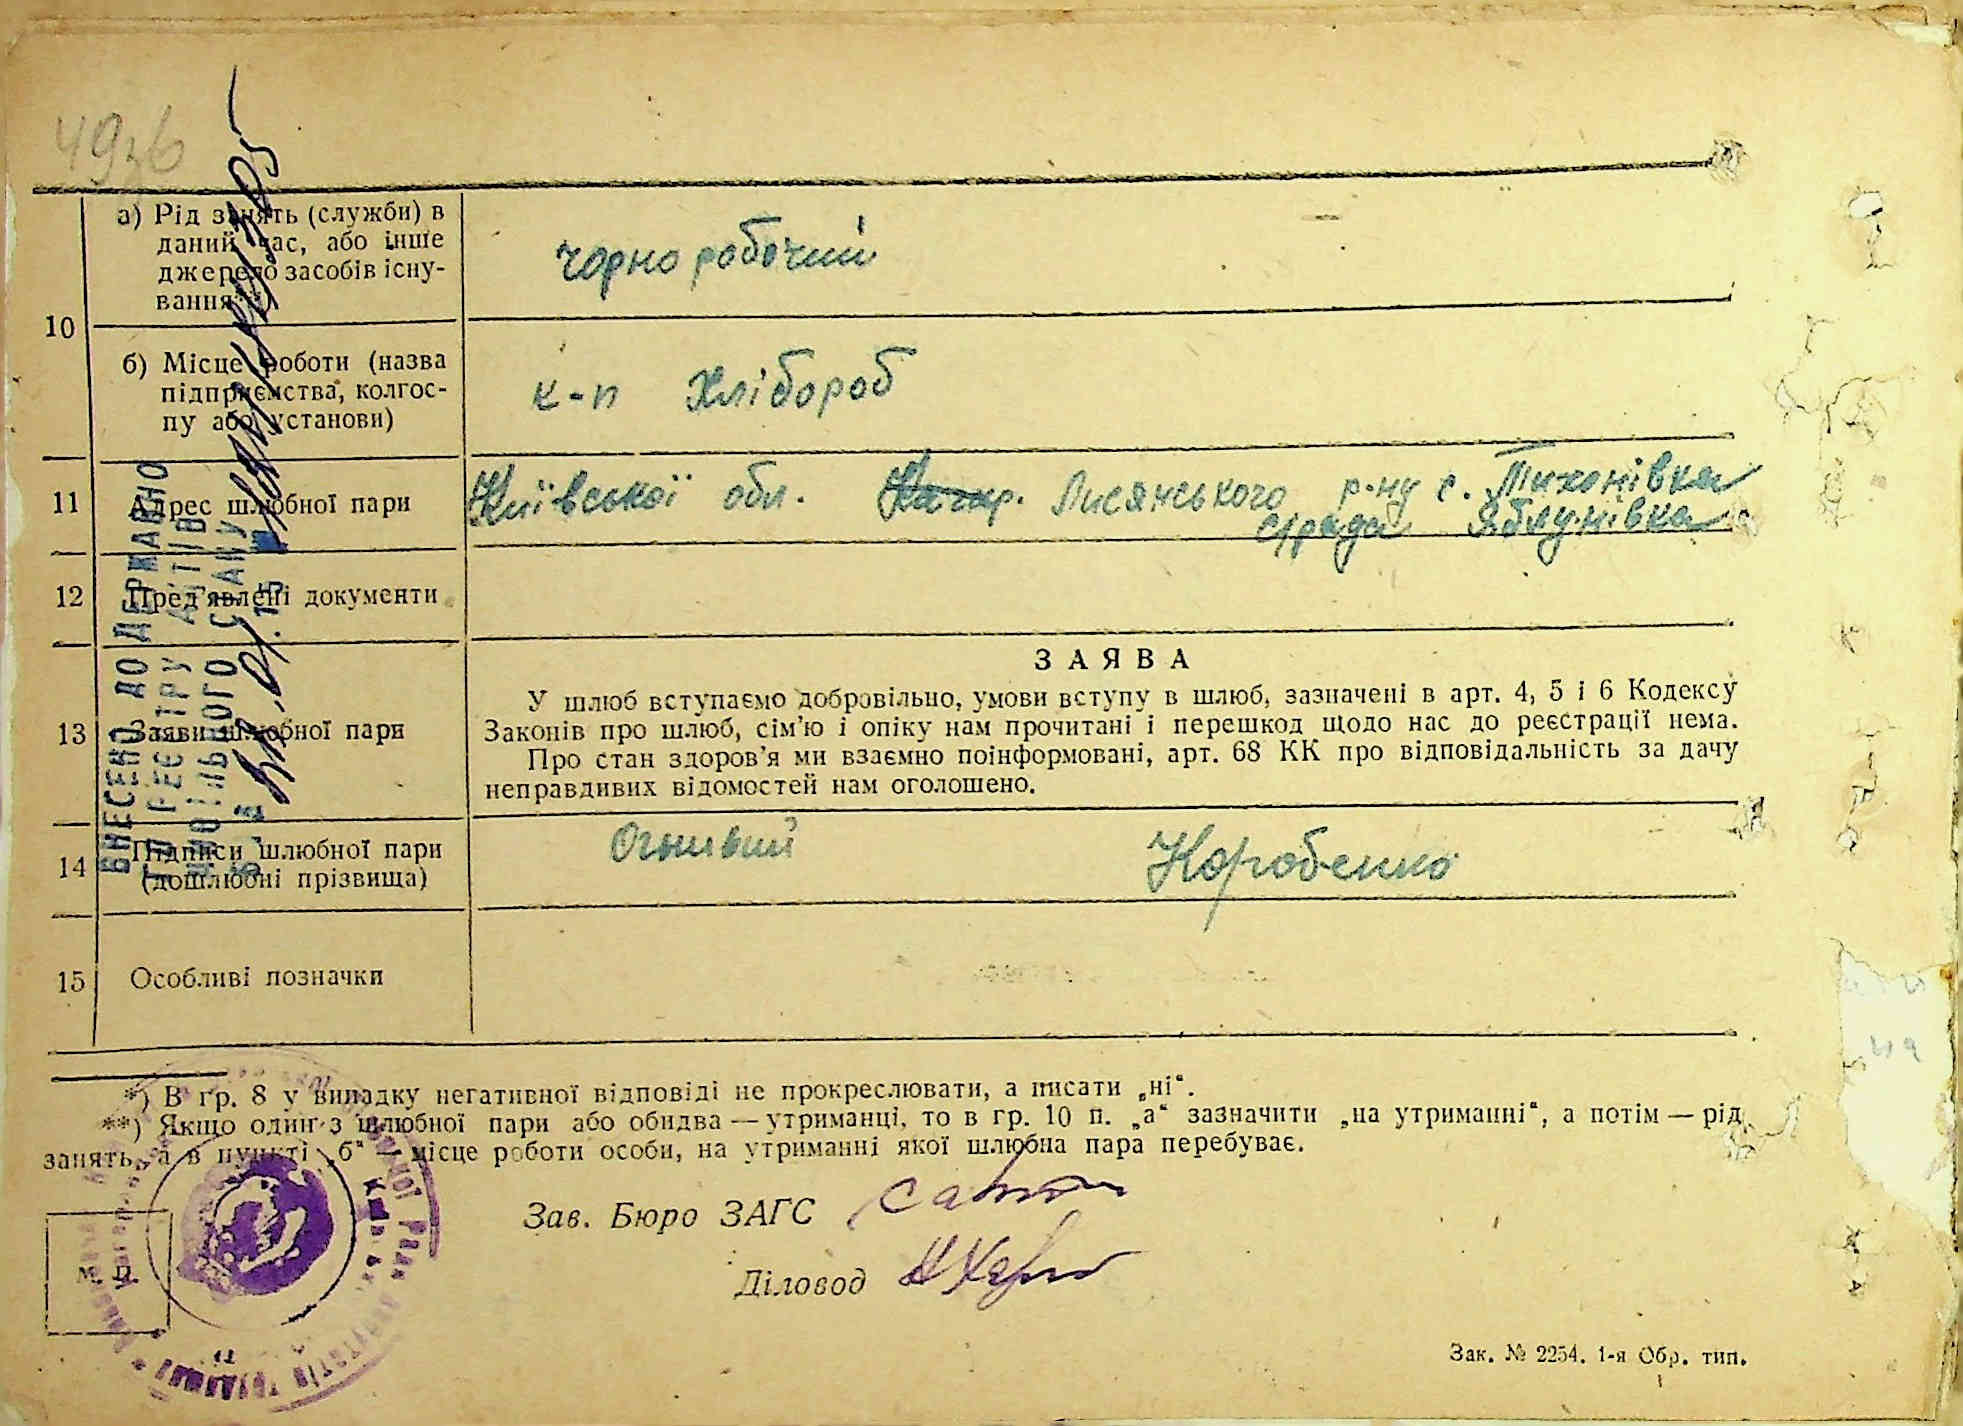 а) Рід занять (служби) в
даний час, або інше
джерело засобів існу-
вання**)
чорноробочий
10
б) Місце роботи (назва
підприємства, колгос-
пу або установи)
к-п Хлібороб
11 Адрес шлюбної пари
Київської обл. Лисянського р-ну с. Тихонівка
с/рада Яблунівка
12 Пред'явлені документи
ЗАЯВА
13 Заяви шлюбної пари
У шлюб вступаємо добровільно, умови вступу в шлюб, зазначені в арт. 4, 5 і 6 Кодексу
Законів про шлюб, сім'ю і опіку нам прочитані і перешкод щодо нас до реєстрації нема.
Про стан здоров'я ми взаємно поінформовані, арт. 68 КК про відповідальність за дачу
неправдивих відомостей нам оголошено.
14 Підписи шлюбної пари
(дошлюбні прізвища)
Огнивий Коробенко
15 Особливі позначки
*) В гр. 8 у випадку негативної відповіді не прокреслювати, а писати „ні“.
**) Якщо один з шлюбної пари або обидва — утриманці, то в гр. 10 п. „а“ зазначити „на утриманні“, а потім — рід
занять, а в пункті „б“ — місце роботи особи, на утриманні якої шлюбна пара перебуває.
Зав. Бюро ЗАГС
Діловод
М. П.
Зак. № 2254. 1-я Обр. тип.
ВНЕСЕНО ДО ДЕРЖАВНО
ГО РЕЄСТРУ АКТІВ
ЦИВІЛЬНОГО СТАНУ